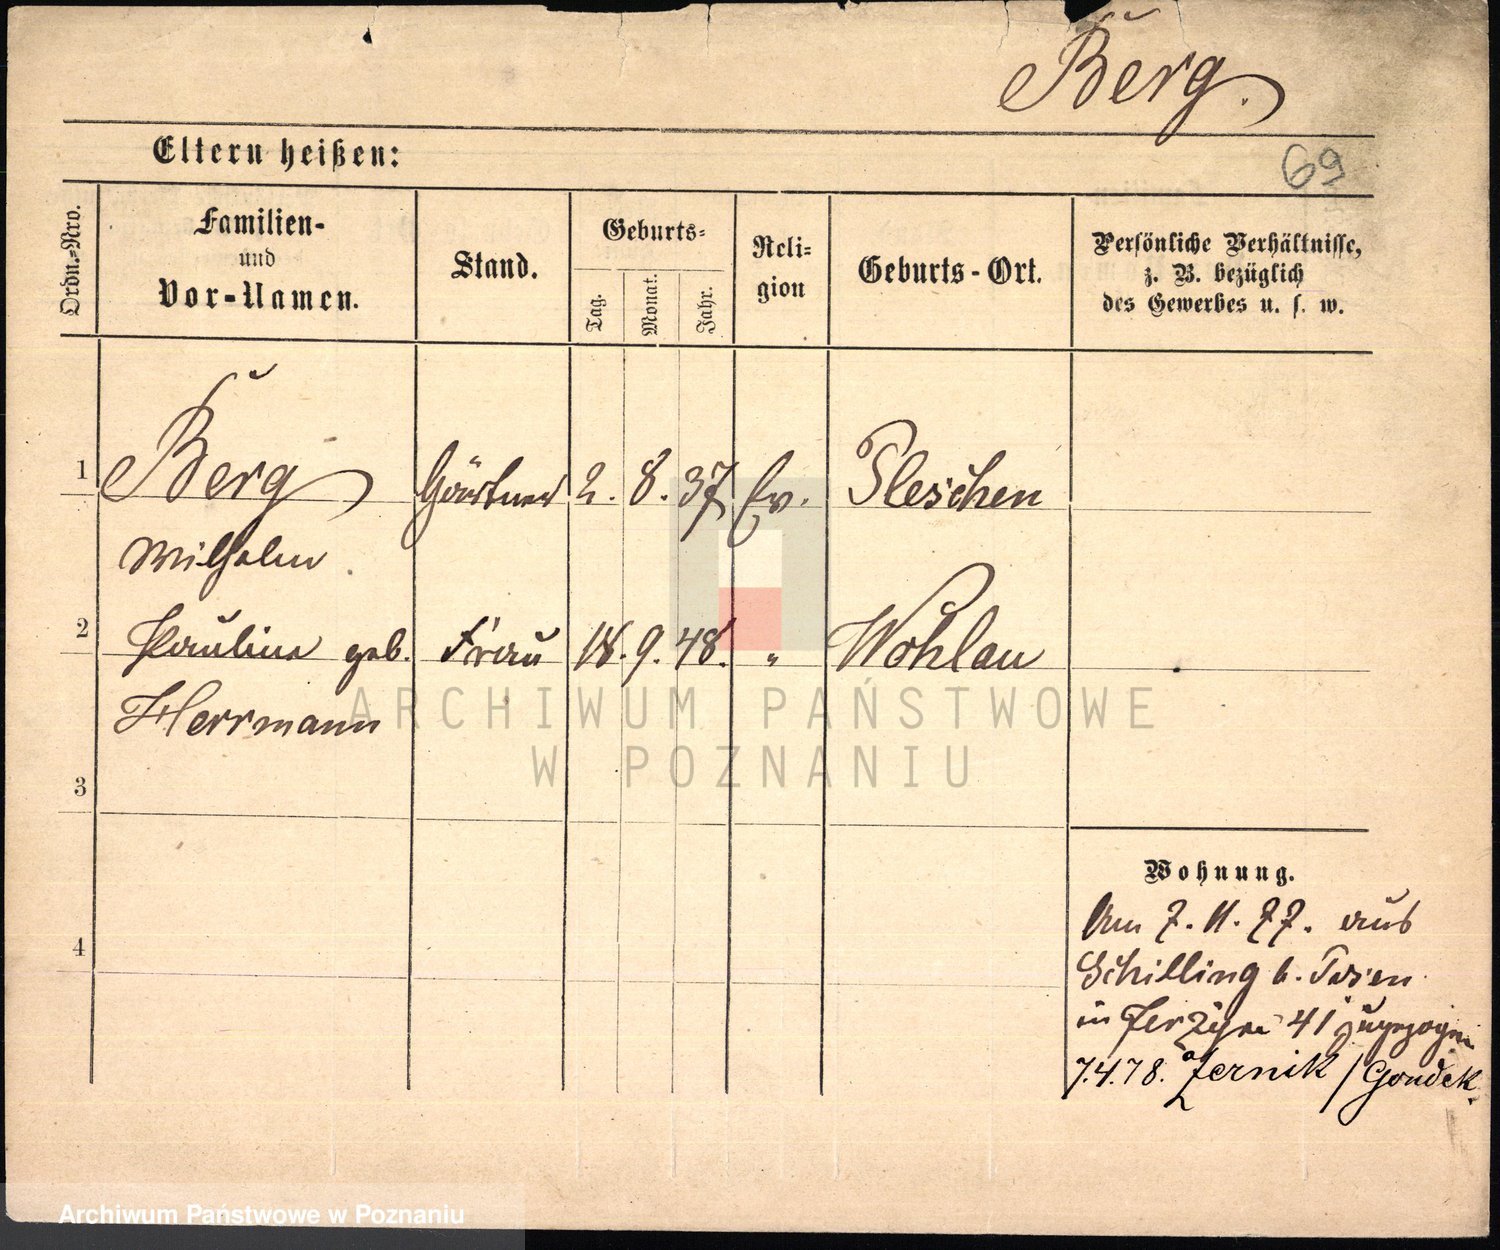 Berg.
69
Eltern heißen:
Ordn.-Nro.
Familien-
und
Vor-Namen.
Stand.
Geburts-
Tag.
Monat.
Jahr.
Reli-
gion
Geburts-Ort.
Persönliche Verhältnisse,
z. B. bezüglich
des Gewerbes u. s. w.
1 Berg Gärtner 2. 8. 37 Ev. Pleschen
Wilhelm
2 Pauline geb. Frau 18. 9. 48. " Wohlau
Herrmann
3
4
Wohnung.
Am 7. 11. 77. aus
Schilling b. Posen
in 41 zugezogen
7.4.78. Zernik / Gondek.
ARCHIWUM PAŃSTWOWE
W POZNANIU
Archiwum Państwowe w Poznaniu